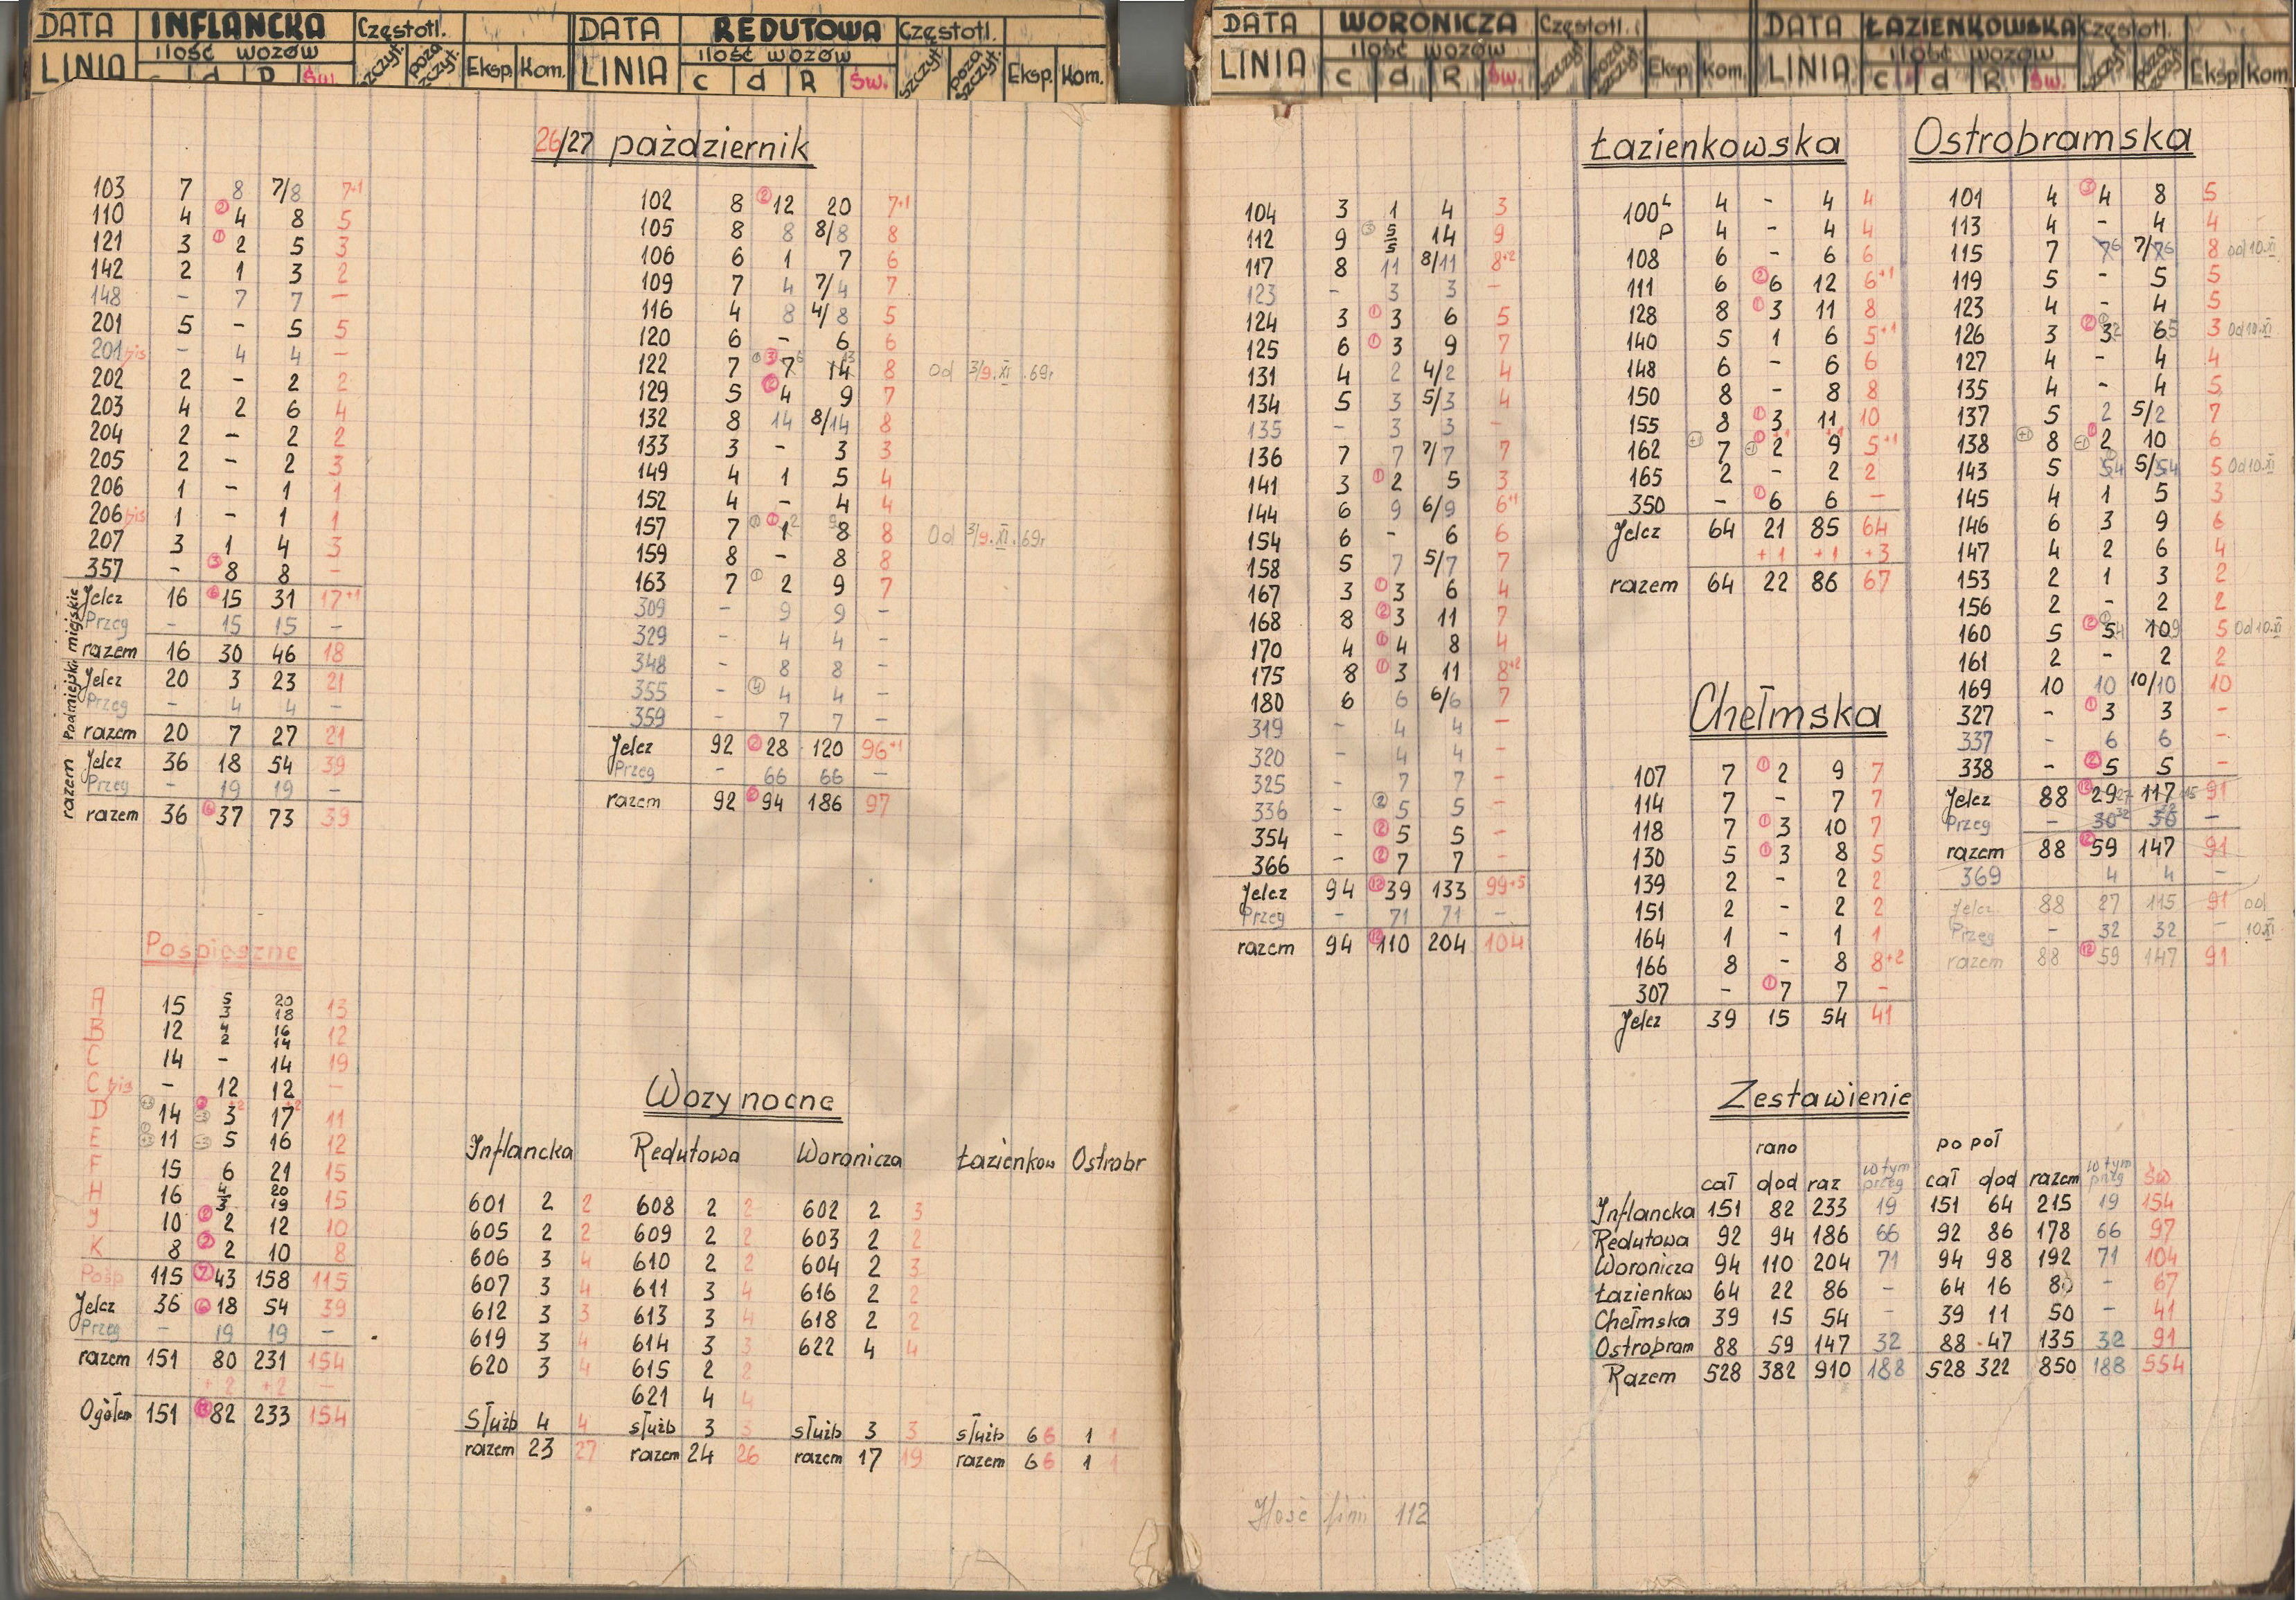 DATA INFLANCKA Częstotl.
LINIA ilość wozów
c d R Św. szczyt. poza szczyt. Eksp. Kom.
DATA REDUTOWA Częstotl.
LINIA ilość wozów
c d R Św. szczyt. poza szczyt. Eksp. Kom.
DATA WORONICZA Częstotl.
LINIA ilość wozów
c d R Św. szczyt. poza szczyt. Eksp. Kom.
DATA ŁAZIENKOWSKA Częstotl.
LINIA ilość wozów
c d R Św. szczyt. poza szczyt. Eksp Kom.
26/27 październik
103 7 8 7/8 7+1
110 4 ② 4 8 5
121 3 ① 2 5 3
142 2 1 3 2
148 - 7 7 -
201 5 - 5 5
201 bis - 4 4 -
202 2 - 2 2
203 4 2 6 4
204 2 - 2 2
205 2 - 2 3
206 1 - 1 1
206 bis 1 - 1 1
207 3 1 4 3
357 - ③ 8 8 -
miejskie
Jelcz 16 ⑥ 15 31 17+1
Przeg - 15 15 -
razem 16 30 46 18
Podmiejski
Jelcz 20 3 23 21
Przeg - 4 4 -
razem 20 7 27 21
razem
Jelcz 36 18 54 39
Przeg - 19 19 -
razem 36 ⑥ 37 73 39
Pośpieszne
A 15 5/3 20/18 13
B 12 4/2 16/14 12
C 14 - 14 19
C bis - 12 12 -
D 14 3 +2 17 +2 11
E 11 5 16 12
F 15 6 21 15
H 16 4/3 20/19 15
J 10 2 12 10
K 8 ② 2 10 8
Pośp 115 ⑦ 43 158 115
Jelcz 36 ⑥ 18 54 39
Przeg - 19 19 -
razem 151 80 231 154
+2 +2 -
Ogółem 151 82 233 154
102 8 ② 12 20 7+1
105 8 8 8/8 8
106 6 1 7 6
109 7 4 7/4 7
116 4 8 4/8 5
120 6 - 6 6
122 7 ① ③ 7 6 14 13 8 Od 3/9.XI.69r
129 5 ② 4 9 7
132 8 14 8/14 8
133 3 - 3 3
149 4 1 5 4
152 4 - 4 4
157 7 ① ① 1 2 8 9 8 Od 3/9.XI.69r
159 8 - 8 8
163 7 ① 2 9 7
309 - 9 9 -
329 - 4 4 -
348 - 8 8 -
355 - ④ 4 4 -
359 - 7 7 -
Jelcz 92 28 120 96+1
Przeg - 66 66 -
razem 92 94 186 97
Wozy nocne
Inflancka
601 2 2
605 2 2
606 3 4
607 3 4
612 3 3
619 3 4
620 3 4
Służb 4 4
razem 23 27
Redutowa
608 2 2
609 2 2
610 2 2
611 3 4
613 3 4
614 3 3
615 2 2
621 4 4
służb 3 3
razem 24 26
Woronicza
602 2 3
603 2 2
604 2 3
616 2 2
618 2 2
622 4 4
służb 3 3
razem 17 19
Łazienkow Ostrobr
służb 6 6 1 1
razem 6 6 1 1
104 3 1 4 3
112 9 ③ 5/5 14 9
117 8 11 8/11 8+2
123 - 3 3 -
124 3 ① 3 6 5
125 6 ① 3 9 7
131 4 2 4/2 4
134 5 3 5/3 4
135 - 3 3 -
136 7 7 7/7 7
141 3 ① 2 5 3
144 6 9 6/9 6+1
154 6 - 6 6
158 5 7 5/7 7
167 3 ① 3 6 4
168 8 ② 3 11 7
170 4 ① 4 8 4
175 8 ① 3 11 8+2
180 6 6 6/6 7
319 - 4 4 -
320 - 4 4 -
325 - 7 7 -
336 - ② 5 5 -
354 - ② 5 5 -
366 - ② 7 7 -
Jelcz 94 ⑫ 39 133 99+5
Przeg - 71 71 -
razem 94 ⑫ 110 204 104
Ilość linii 112
Łazienkowska
100 L 4 - 4 4
P 4 - 4 4
108 6 - 6 6
111 6 ② 6 12 6+1
128 8 ① 3 11 8
140 5 1 6 5+1
148 6 - 6 6
150 8 - 8 8
155 8 ① 3 11 10
162 7 2 +1 9 +1 5+1
165 2 - 2 2
350 - ① 6 6 -
Jelcz 64 21 85 64
+1 +1 +3
razem 64 22 86 67
Chełmska
107 7 ① 2 9 7
114 7 - 7 7
118 7 ① 3 10 7
130 5 ① 3 8 5
139 2 - 2 2
151 2 - 2 2
164 1 - 1 1
166 8 - 8 8+2
307 - ① 7 7 -
Jelcz 39 15 54 41
Ostrobramska
101 4 ③ 4 8 5
113 4 - 4 4
115 7 7 6 7/7 6 8 od 10.XI
119 5 - 5 5
123 4 - 4 5
126 3 ② 3 2 6 5 3 Od 10.XI
127 4 - 4 4
135 4 - 4 5
137 5 2 5/2 7
138 8 2 10 6
143 5 5 4 5/5 4 5 Od 10.XI
145 4 1 5 3
146 6 3 9 6
147 4 2 6 4
153 2 1 3 2
156 2 - 2 2
160 5 ② 5 4 10 9 5 Od 10.XI
161 2 - 2 2
169 10 10 10/10 10
327 - ① 3 3 -
337 - 6 6 -
338 - ② 5 5 -
Jelcz 88 ⑫ 29 27 117 15 91
Przeg - 30 32 30 32 -
razem 88 ⑫ 59 147 91
369 - 4 4 -
Jelcz 88 27 115 91 od
Przeg - 32 32 - 10.XI
razem 88 ⑫ 59 147 91
Zestawienie
rano po poł
cał dod raz w tym przeg cał dod razem w tym przeg św
Inflancka 151 82 233 19 151 64 215 19 154
Redutowa 92 94 186 66 92 86 178 66 97
Woronicza 94 110 204 71 94 98 192 71 104
Łazienkow 64 22 86 - 64 16 80 - 67
Chełmska 39 15 54 - 39 11 50 - 41
Ostrobram 88 59 147 32 88 47 135 32 91
Razem 528 382 910 188 528 322 850 188 554